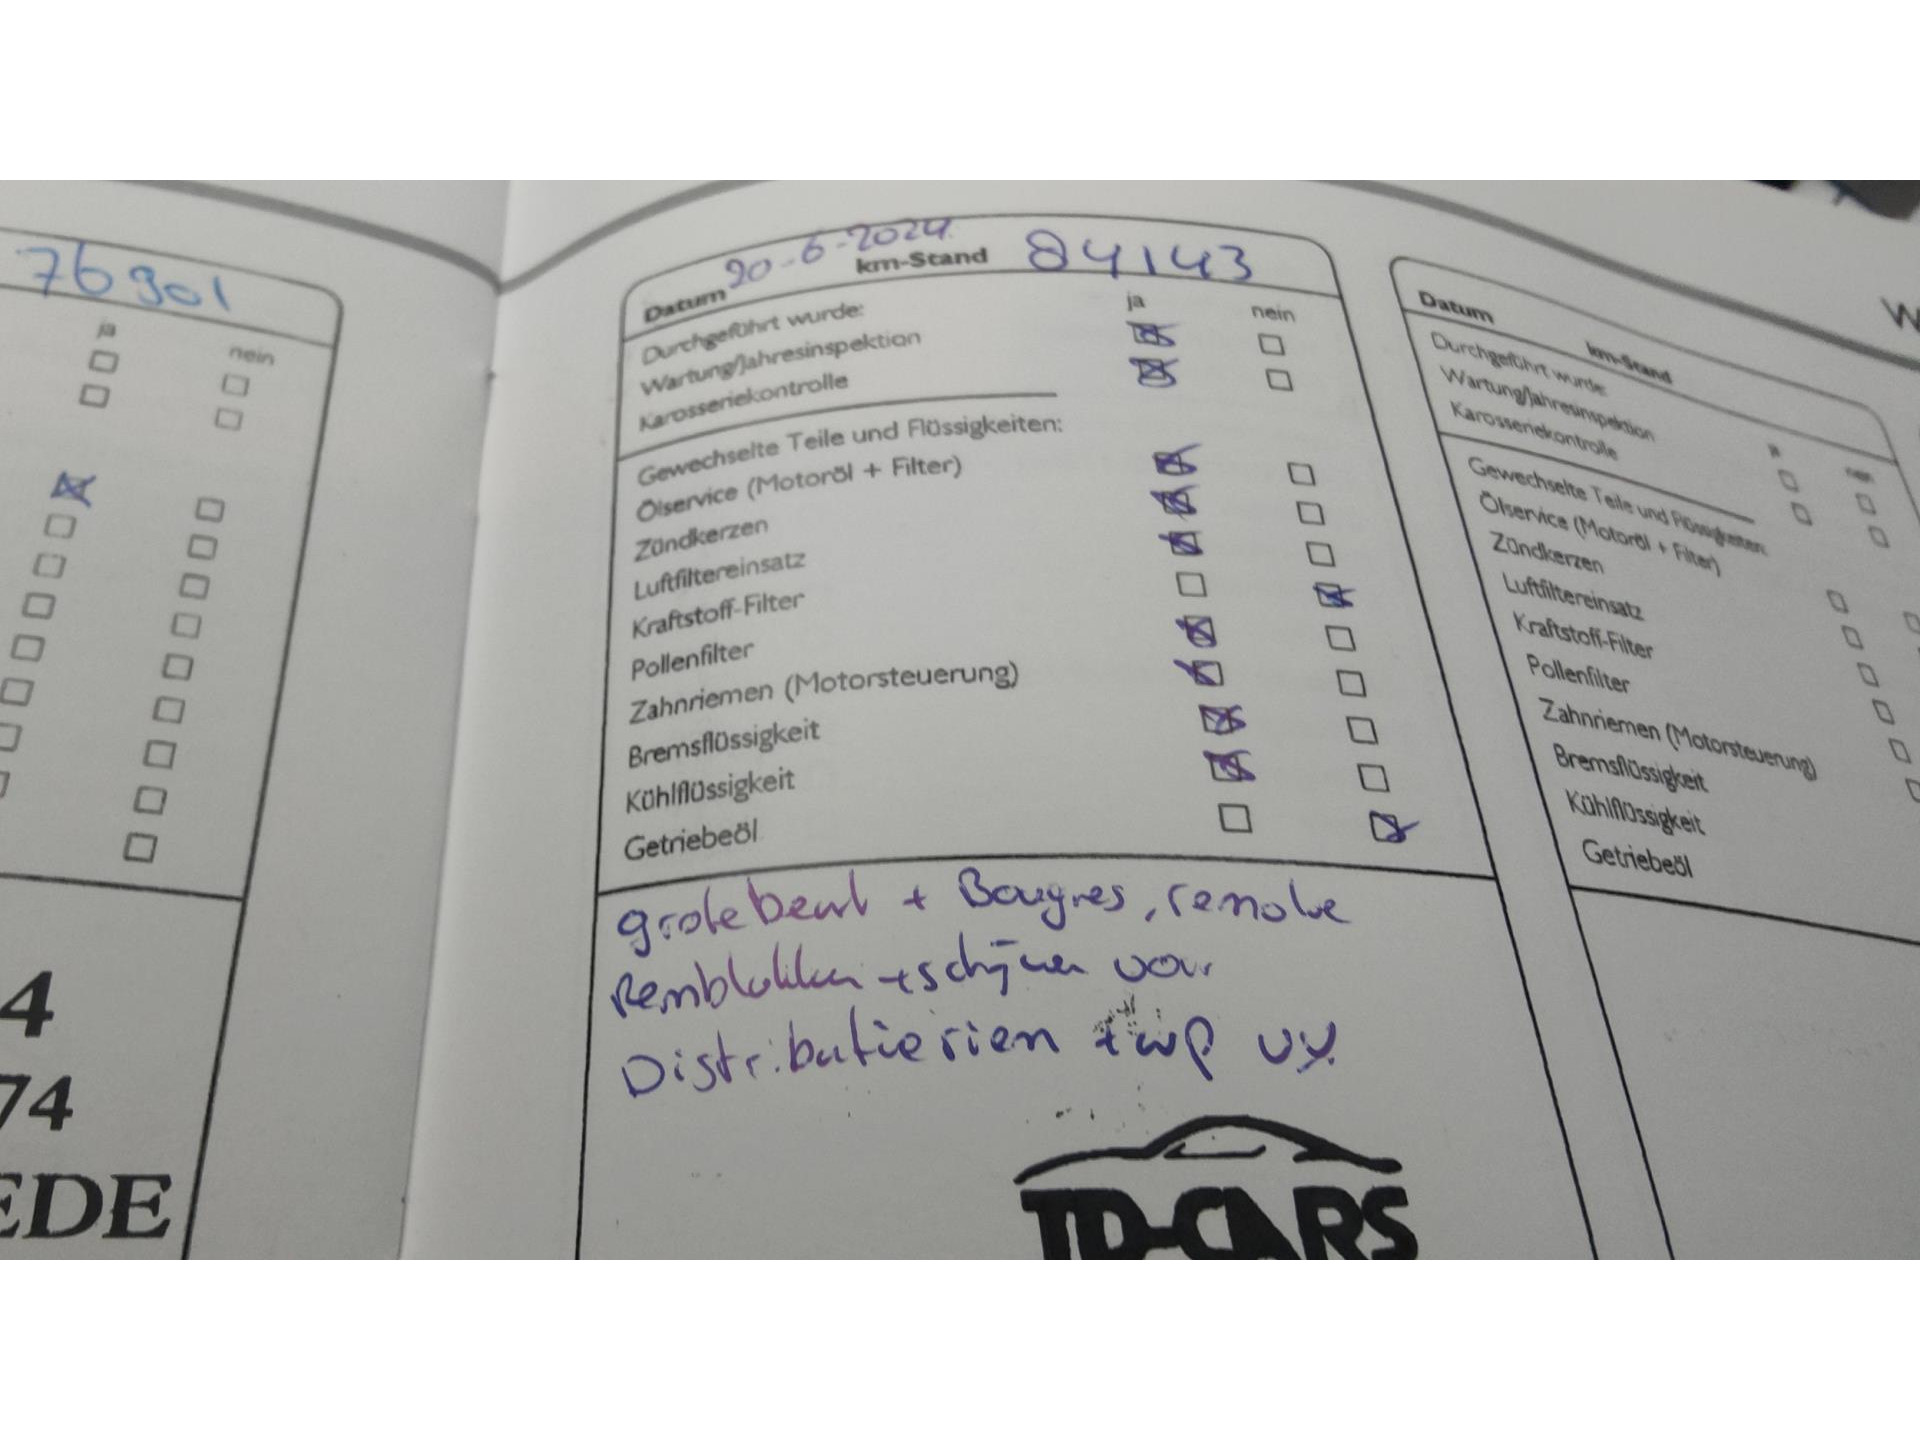 76901
ja
nein
4
74
EDE
20-6-2024
Datum km-Stand 84143
Durchgeführt wurde: ja nein
Wartung/Jahresinspektion
Karosseriekontrolle
Gewechselte Teile und Flüssigkeiten:
Ölservice (Motoröl + Filter)
Zündkerzen
Luftfiltereinsatz
Kraftstoff-Filter
Pollenfilter
Zahnriemen (Motorsteuerung)
Bremsflüssigkeit
Kühlflüssigkeit
Getriebeöl
grote beurt + Bougies, remolie
Remblokken + schijven voor
Distributie riem + wp vv
TD-CARS
W
Datum
km-Stand
Durchgeführt wurde:
Wartung/Jahresinspektion
Karosseriekontrolle
ja nein
Gewechselte Teile und Flüssigkeiten:
Ölservice (Motoröl + Filter)
Zündkerzen
Luftfiltereinsatz
Kraftstoff-Filter
Pollenfilter
Zahnriemen (Motorsteuerung)
Bremsflüssigkeit
Kühlflüssigkeit
Getriebeöl